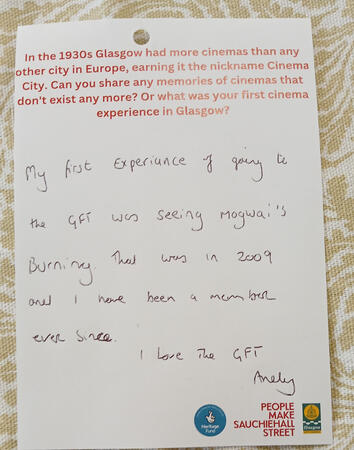 In the 1930s Glasgow had more cinemas than any
other city in Europe, earning it the nickname Cinema
City. Can you share any memories of cinemas that
don't exist any more? Or what was your first cinema
experience in Glasgow?
My first Experiance of going to
the GFT was seeing Mogwai's
Burning. That was in 2009
and I have been a member
ever since.
I Love The GFT
Heritage
Fund
PEOPLE
MAKE
SAUCHIEHALL
STREET
Glasgow